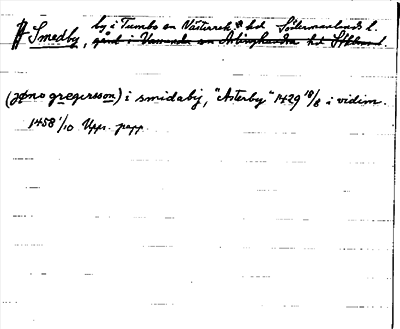 # Smedby, by i Tumbo sn Västerrek. hd Södermanlands l.
gård i sn hd
(jøns gregersson) i smidaby, "Asterby" 1429 18/8 i vidim.
1458 1/10 Upps. papp.